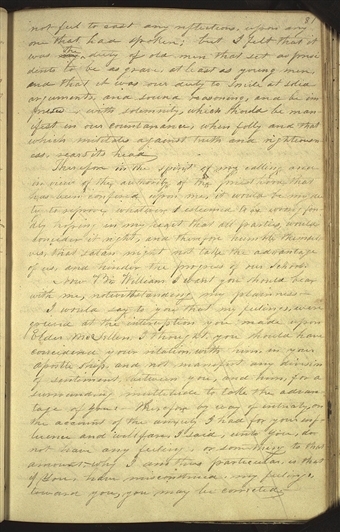 81
not feel to cast any reflections upon any
one that had spoken; but I felt that it
was the duty of old men that set as presi
dents to be as grave, at least as young men,
and that it was our duty to smile at solid
arguments, and sound reasoning, and be im
pressed with solemnity, which should be man
ifest in our countanance, when folly and that
which militates against truth and righteous-
ess, rears its head
Therefore in the spirit of my calling and
in view of the authority of the priesthood that
has been confered upon me, it would be my du
ty to reprove whatever I esteemed to be wrong fon-
dly hoping in my heart that all parties, would
consider it right, and therefore humble themsel
ves, that satan might not take the advantage
of us, and hinder the progress of our School.
Now Br. William I want you should bear
with me, notwithstanding my plainness—
I would say to you that my feelings, were
grieved at the interuption you made upon
Elder McLellen. I thought you should have
concidered your relation, with him, in your
Apostle ship, and not manifest any division
of sentiment, between you, and him, for a
surrounding multitude to take the advan-
tage of you:— Therefore by way of entreaty, on
the account of the anxiety I had for your influ
ence and wellfare, I said, unto you, do
not have any feeling, or something to that
amount, why I am thus particular, is that
if you, have misconstrued, my feelings,
toward you, you may be corrected.—